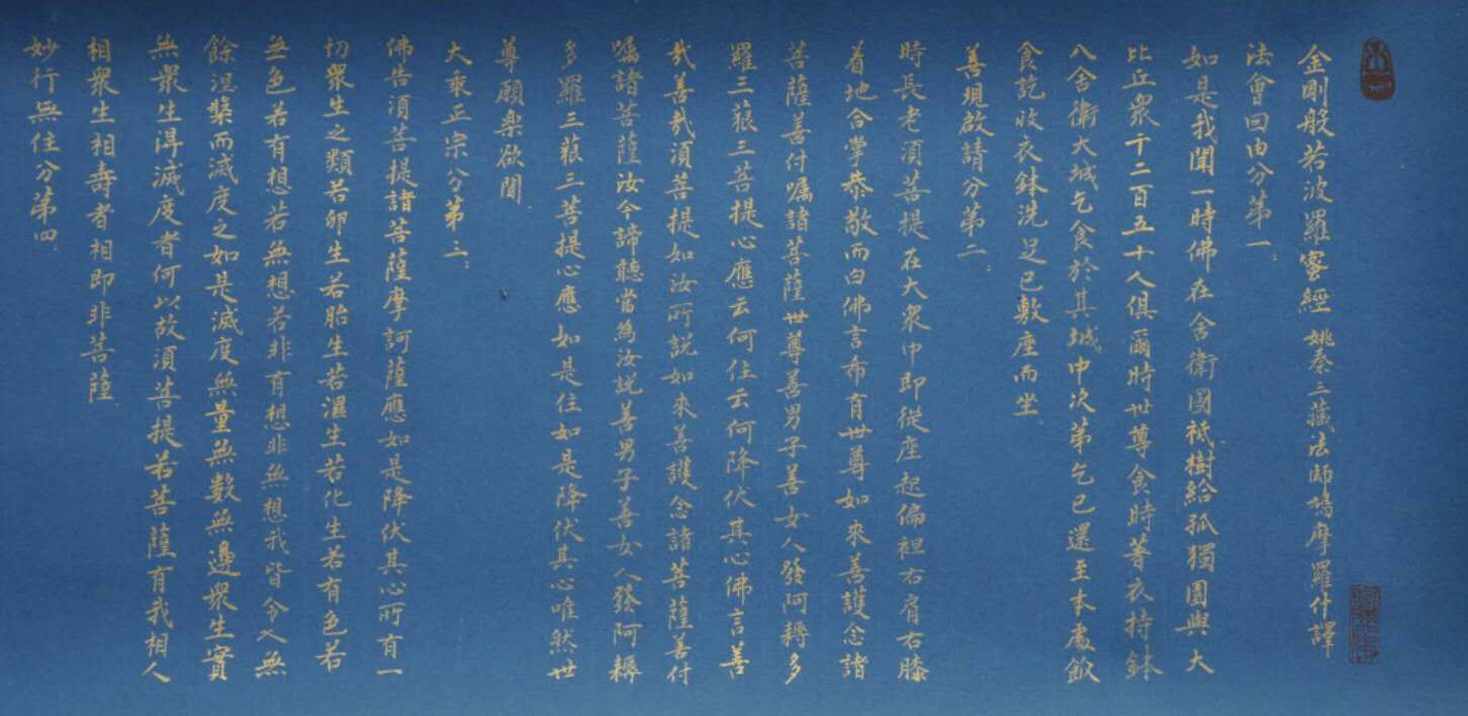 金剛般若波羅密經 姚秦三藏法師鳩摩羅什譯
法會因由分第一
如是我聞一時佛在舍衛國祇樹給孤獨園與大
比丘衆千二百五十人俱爾時世尊食時著衣持鉢
入舍衛大城乞食於其城中次第乞已還至本處飯
食訖收衣鉢洗足已敷座而坐
善現啟請分第二
時長老須菩提在大衆中即從座起偏袒右肩右膝
着地合掌恭敬而白佛言希有世尊如來善護念諸
菩薩善付囑諸菩薩世尊善男子善女人發阿耨多
羅三藐三菩提心應云何住云何降伏其心佛言善
哉善哉須菩提如汝所説如來善護念諸菩薩善付
囑諸菩薩汝今諦聽當為汝説善男子善女人發阿耨
多羅三藐三菩提心應如是住如是降伏其心唯然世
尊願樂欲聞
大乘正宗分第三
佛告須菩提諸菩薩摩訶薩應如是降伏其心所有一
切衆生之類若卵生若胎生若濕生若化生若有色若
無色若有想若無想若非有想非無想我皆令入無
餘涅槃而滅度之如是滅度無量無數無邊衆生實
無衆生得滅度者何以故須菩提若菩薩有我相人
相衆生相壽者相即非菩薩
妙行無住分第四